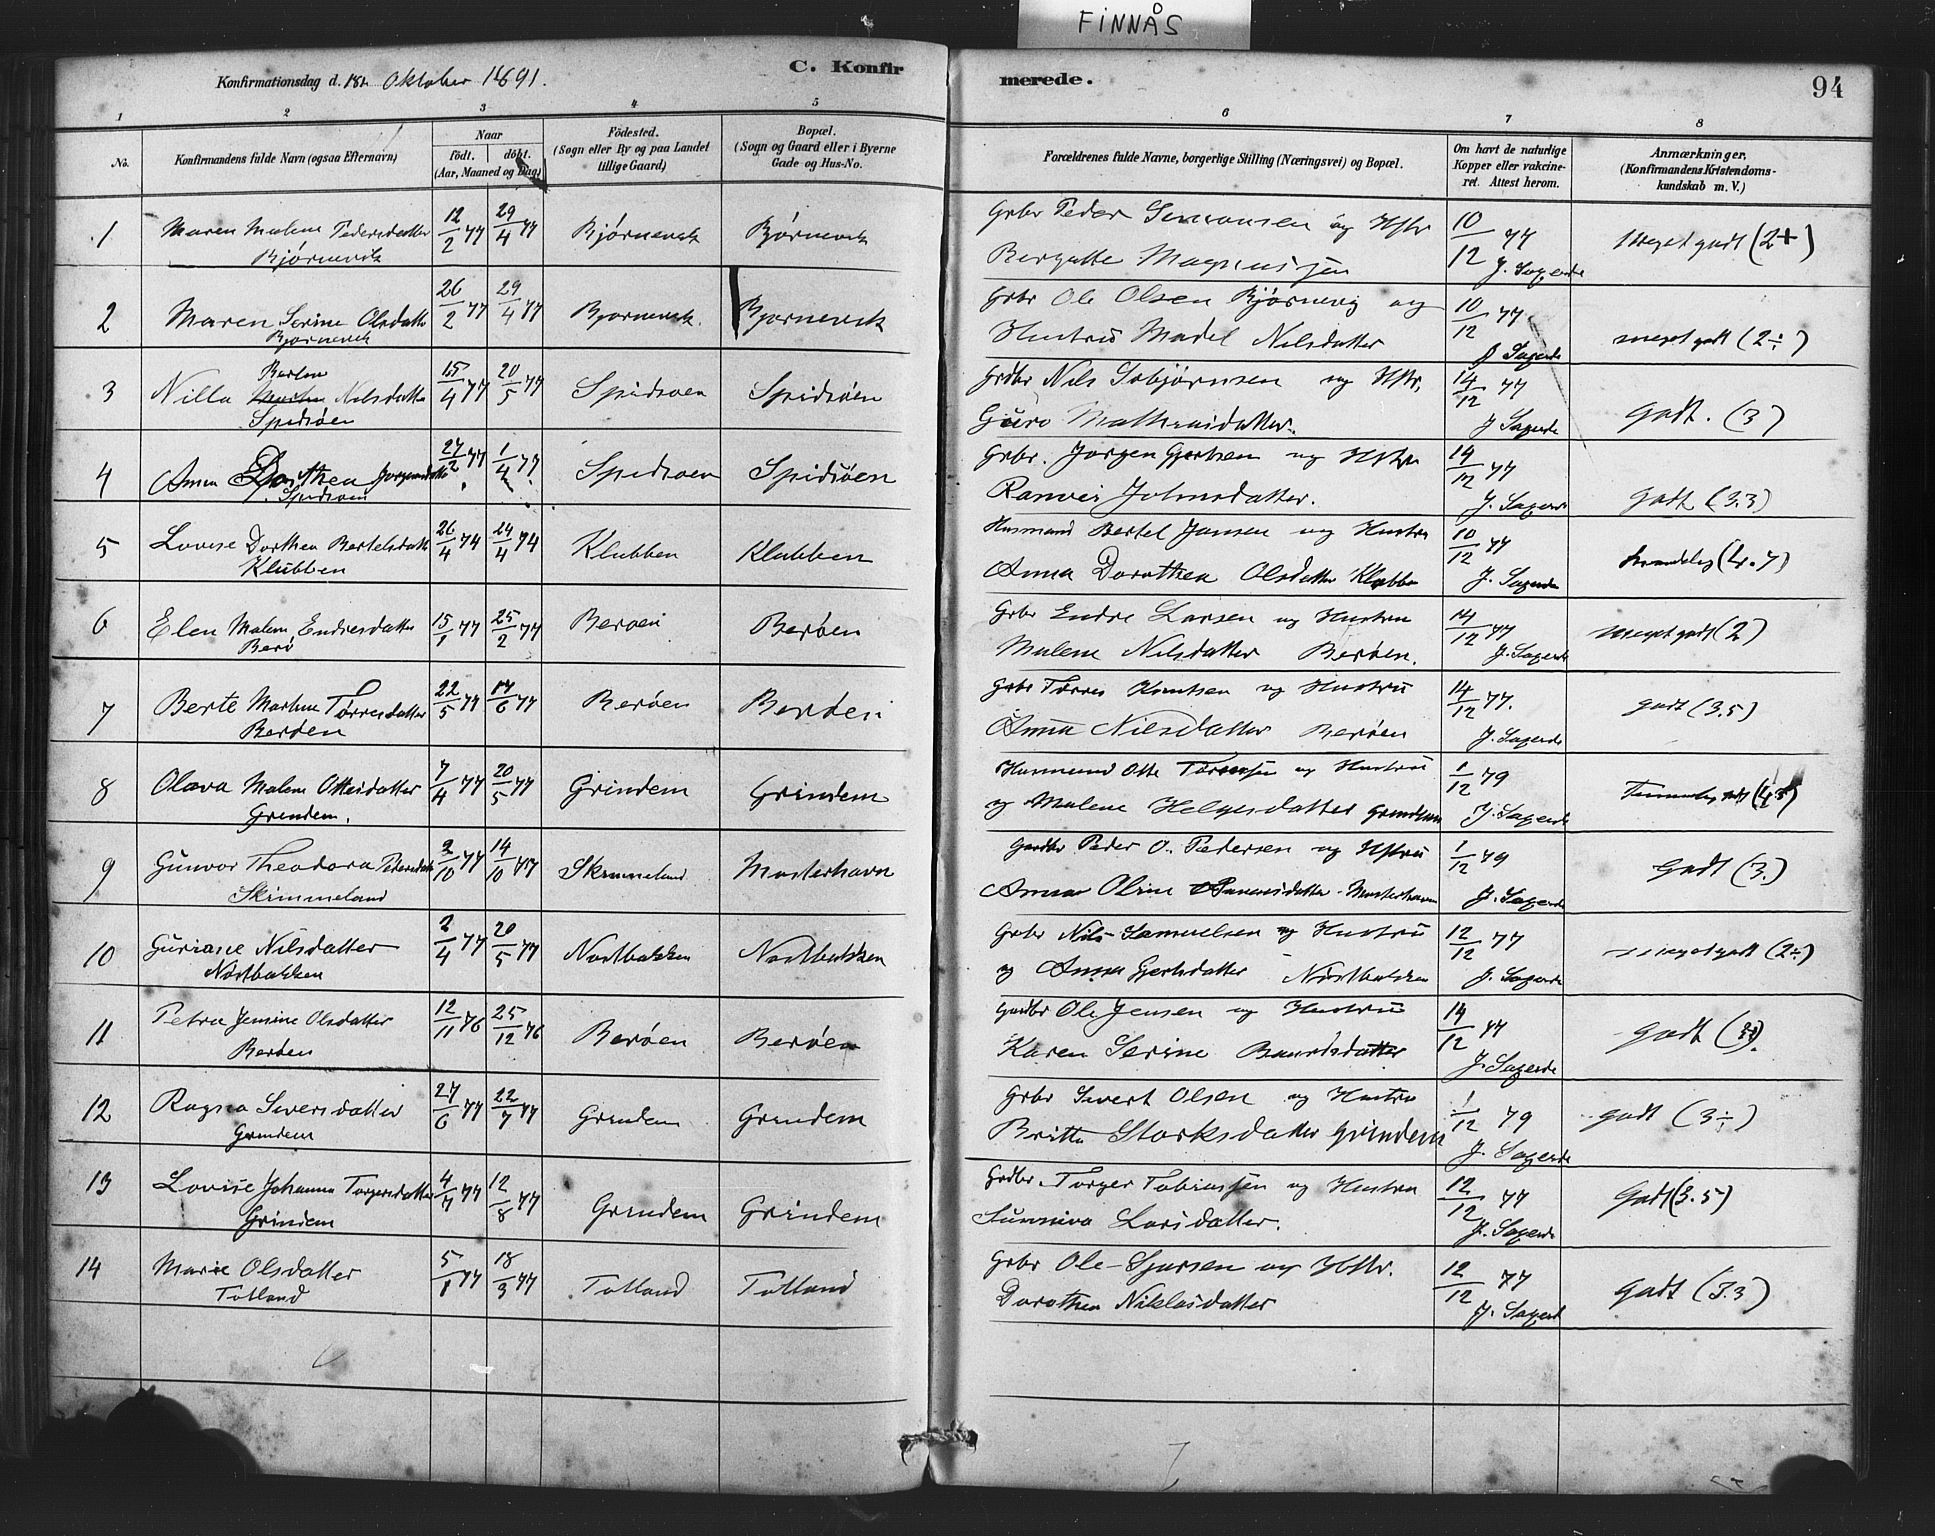 FINNÅS
Konfirmationsdag d. 18de Oktober 1891.
C. Konfirmerede.
94
1 2 3 4 5 6 7 8
No.
Konfirmandens fulde Navn (ogsaa Efternavn)
Naar
födt. döbt.
(Aar, Maaned og Dag)
Födested.
(Sogn eller By og paa Landet
tillige Gaard)
Bopæl.
(Sogn og Gaard eller i Byerne
Gade og Hus-No.
Forældrenes fulde Navne, borgerlige Stilling (Næringsvei) og Bopæl.
Om havt de naturlige
Kopper eller vakcine-
ret. Attest herom.
Anmærkninger.
(Konfirmandens Kristendoms-
kundskab m. V.)
1 Maren Malene Pedersdatter 12/2 77 29/4 77 Bjørnevik Bjørnevik Grbr Peder Simonsen og Hstr 10/12 77 Meget godt (2+)
Bjørnevik Bergitte Magnussen J. Sagende
2 Maren Serine Olsdatter 26/2 77 29/4 77 Bjørnevik. Bjørnevik Grbr Ole Olsen Bjørnevig og 10/12 77 meget godt (2÷)
Bjørnevik Hustru Madel Nilsdatter J Sagende
3 Nilla Berthe Nilsdatter 15/4 77 20/5 77 Spidsøen Spidsøen Grdbr Nils Asbjørnsen og Hstr. 14/12 77 Godt. (3)
Spidsøen Guro Mathiasdatter. J Sagende
4 Anna Dorthea Jørgensdatter 27/2 77 1/4 77. Spidsøen Spidsøen Grbr. Jørgen Gjertsen og Hstru 14/12 77 Godt (3.3)
Spidsøen Ranvei Johnsdatter. J. Sagende
5 Lovise Dorthea Bertelsdatter 26/4 74 24/4 74 Klubben Klubben Husmand Bertel Jansen og Hustru 10/12 77
Klubben Anna Dorothea Olsdatter Klubben J. Sagende
6 Elen Malene Endresdatter 15/1 77 25/2 77 Berøen Berøen Grbr Endre Larsen og Hustru 14/12 77 Meget godt (2)
Berø Malene Nilsdatter Berøen. J. Sagende
7 Berte Marthe Tørresdatter 22/5 77 17/6 77 Berøen Berøen Grbr Tørres Knutsen og Hustru 14/12 77. godt (3.5)
Berøen Anna Nilsdatter Berøen J. Sagende
8 Olava Malene Ottesdatter 7/4 77 20/5 77 Grindem Grindem Husmand Otte og Hustru 1/12 79
Grindem. og Malene Helgesdatter Grindem J. Sagende
9 Gunvor Theodora Pedersdatter 2/10 77 14/10 77 Skimmeland Mosterhavn Gardbr Peder O. Pedersen og Hstru 1/12 79 Godt (3.)
Skimmeland Anna Oline Mosterhavn J. Sagende
10 Guriane Nilsdatter 2/4 77 20/5 77 Nordbakken Nordbakken Grbr Nils Samuelsen og Hustru 12/12 77 meget godt (2÷)
Nordbakken og Anna Gjertsdatter Nordbakken J. Sagende
11 Petra Jensine Olsdatter 12/11 76 25/12 76 Berøen Berøen Gardbr Ole Jensen og Hustru 14/12 77 Godt
Berøen Karen Serine Baardsdatter J. Sagende
12 Ragna Siversdatter 27/6 77 22/7 77 Grindem Grindem Grbr Sivert Olsen og Hustru 1/12 79 godt (3÷)
Grindem Britta Storksdatter Grindem J. Sagende
13 Lovise Johanna Torgersdatter 4/7 77 12/8 77 Grindem Grindem Grdbr. Torger Tobiassen og Hustru 12/12 77 Godt (3.5)
Grindem Sunniva Larsdatter. J. Sagende
14 Marie Olsdatter 5/1 77 18/3 77 Totland Totland Grbr Ole Sjursen og Hstr. 12/12 77 Godt (3.3)
Totland Dorothea Niklasdatter J. Sagende